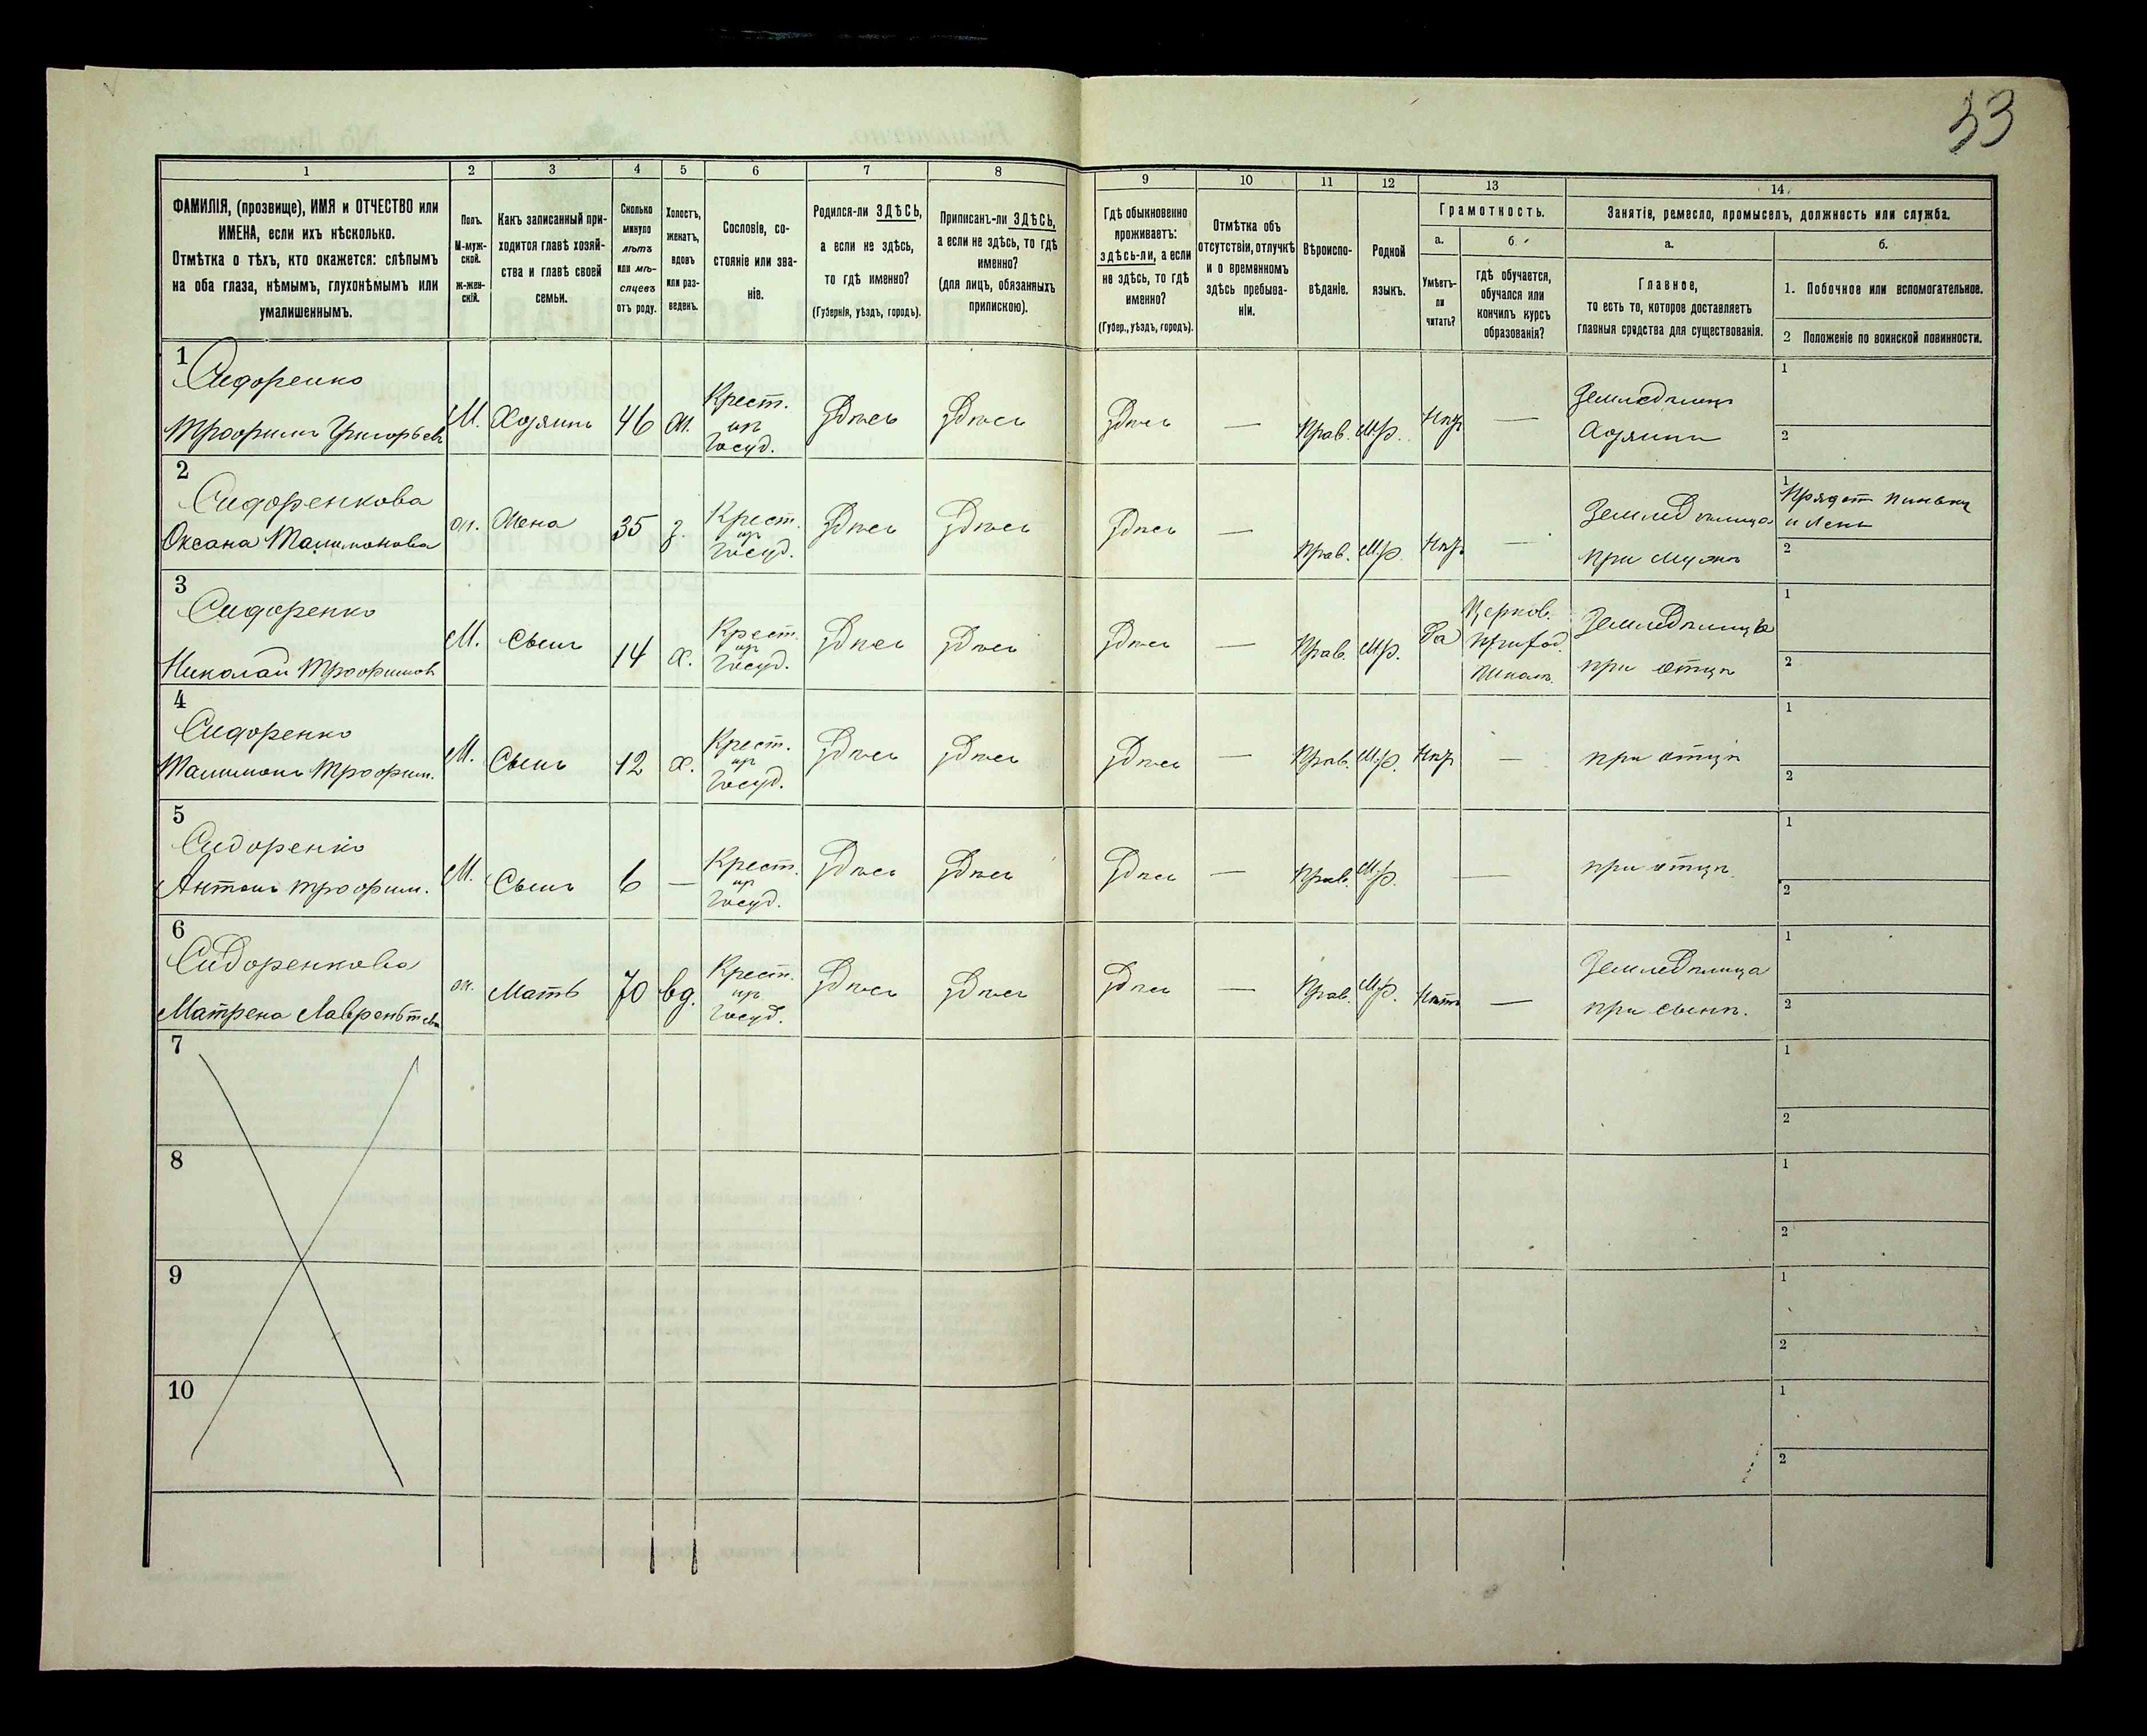 33
1 2 3 4 5 6 7 8 9 10 11 12 13 14
ФАМИЛІЯ, (прозвище), ИМЯ и ОТЧЕСТВО или
ИМЕНА, если ихъ нѣсколько.
Отмѣтка о тѣхъ, кто окажется: слѣпымъ
на оба глаза, нѣмымъ, глухонѣмымъ или
умалишеннымъ.
Полъ.
М-муж-
ской.
ж-жен-
скій.
Какъ записанный при-
ходится главѣ хозяй-
ства и главѣ своей
семьи.
Сколько
минуло
лѣтъ
или мѣ-
сяцевъ
отъ роду.
Холостъ,
женатъ,
вдовъ
или раз-
веденъ.
Сословіе, со-
стояніе или зва-
ніе.
Родился-ли ЗДѢСЬ,
а если не здѣсь,
то гдѣ именно?
(Губернія, уѣздъ, городъ).
Приписанъ-ли ЗДѢСЬ,
а если не здѣсь, то гдѣ
именно?
(для лицъ, обязанныхъ
припискою).
Гдѣ обыкновенно
проживаетъ:
здѣсь-ли, а если
не здѣсь, то гдѣ
именно?
(Губер., уѣздъ, городъ).
Отмѣтка объ
отсутствіи, отлучкѣ
и о временномъ
здѣсь пребыва-
ніи.
Вѣроиспо-
вѣданіе.
Родной
языкъ.
Грамотность.
а.
Умѣетъ-
ли
читать?
б.
гдѣ обучается,
обучался или
кончилъ курсъ
образованія?
Занятіе, ремесло, промыселъ, должность или служба.
а.
Главное,
то есть то, которое доставляетъ
главныя средства для существованія.
б.
1. Побочное или вспомогательное.
2 Положеніе по воинской повинности.
1
Сидоренко
Трофимъ Григорьев
М. Хозяинъ 46 ж. Крест.
из
Госуд.
Здѣсь Здѣсь Здѣсь — Прав. М.р. Нѣт —
Земледѣлецъ
Хозяинъ
1
2
2
Сидоренкова
Оксана Талимонова
ж. Жена 35 з. Крест.
из
Госуд.
Здѣсь Здѣсь Здѣсь — Прав. М.р. Нѣт —
Земледѣлица
при мужѣ
1 Прядет пеньку
и лень
2
3
Сидоренко
Николай Трофимов
М. Сынъ 14 х. Крест.
из
Госуд.
Здѣсь Здѣсь Здѣсь — Прав. М.р. Да
Церков.
Приход.
Школѣ.
при отцѣ
1
2
4
Сидоренко
Талимонъ Трофим.
М. Сынъ 12 х. Крест.
из
Госуд.
Здѣсь Здѣсь Здѣсь — Прав. М.р. Нѣт —
при отцѣ
1
2
5
Сидоренко
Антонъ Трофим.
М. Сынъ 6 — Крест.
из
Госуд.
Здѣсь Здѣсь Здѣсь — Прав. М.р. —
при отцѣ.
1
2
6
Сидоренкова
Матрена Лаврентьева
ж. Мать 70 вд. Крест.
из
Госуд.
Здѣсь Здѣсь Здѣсь — Прав. М.р. Нѣтъ —
Земледѣлица
при сынѣ.
1
2
7
1
2
8
1
2
9
1
2
10
1
2